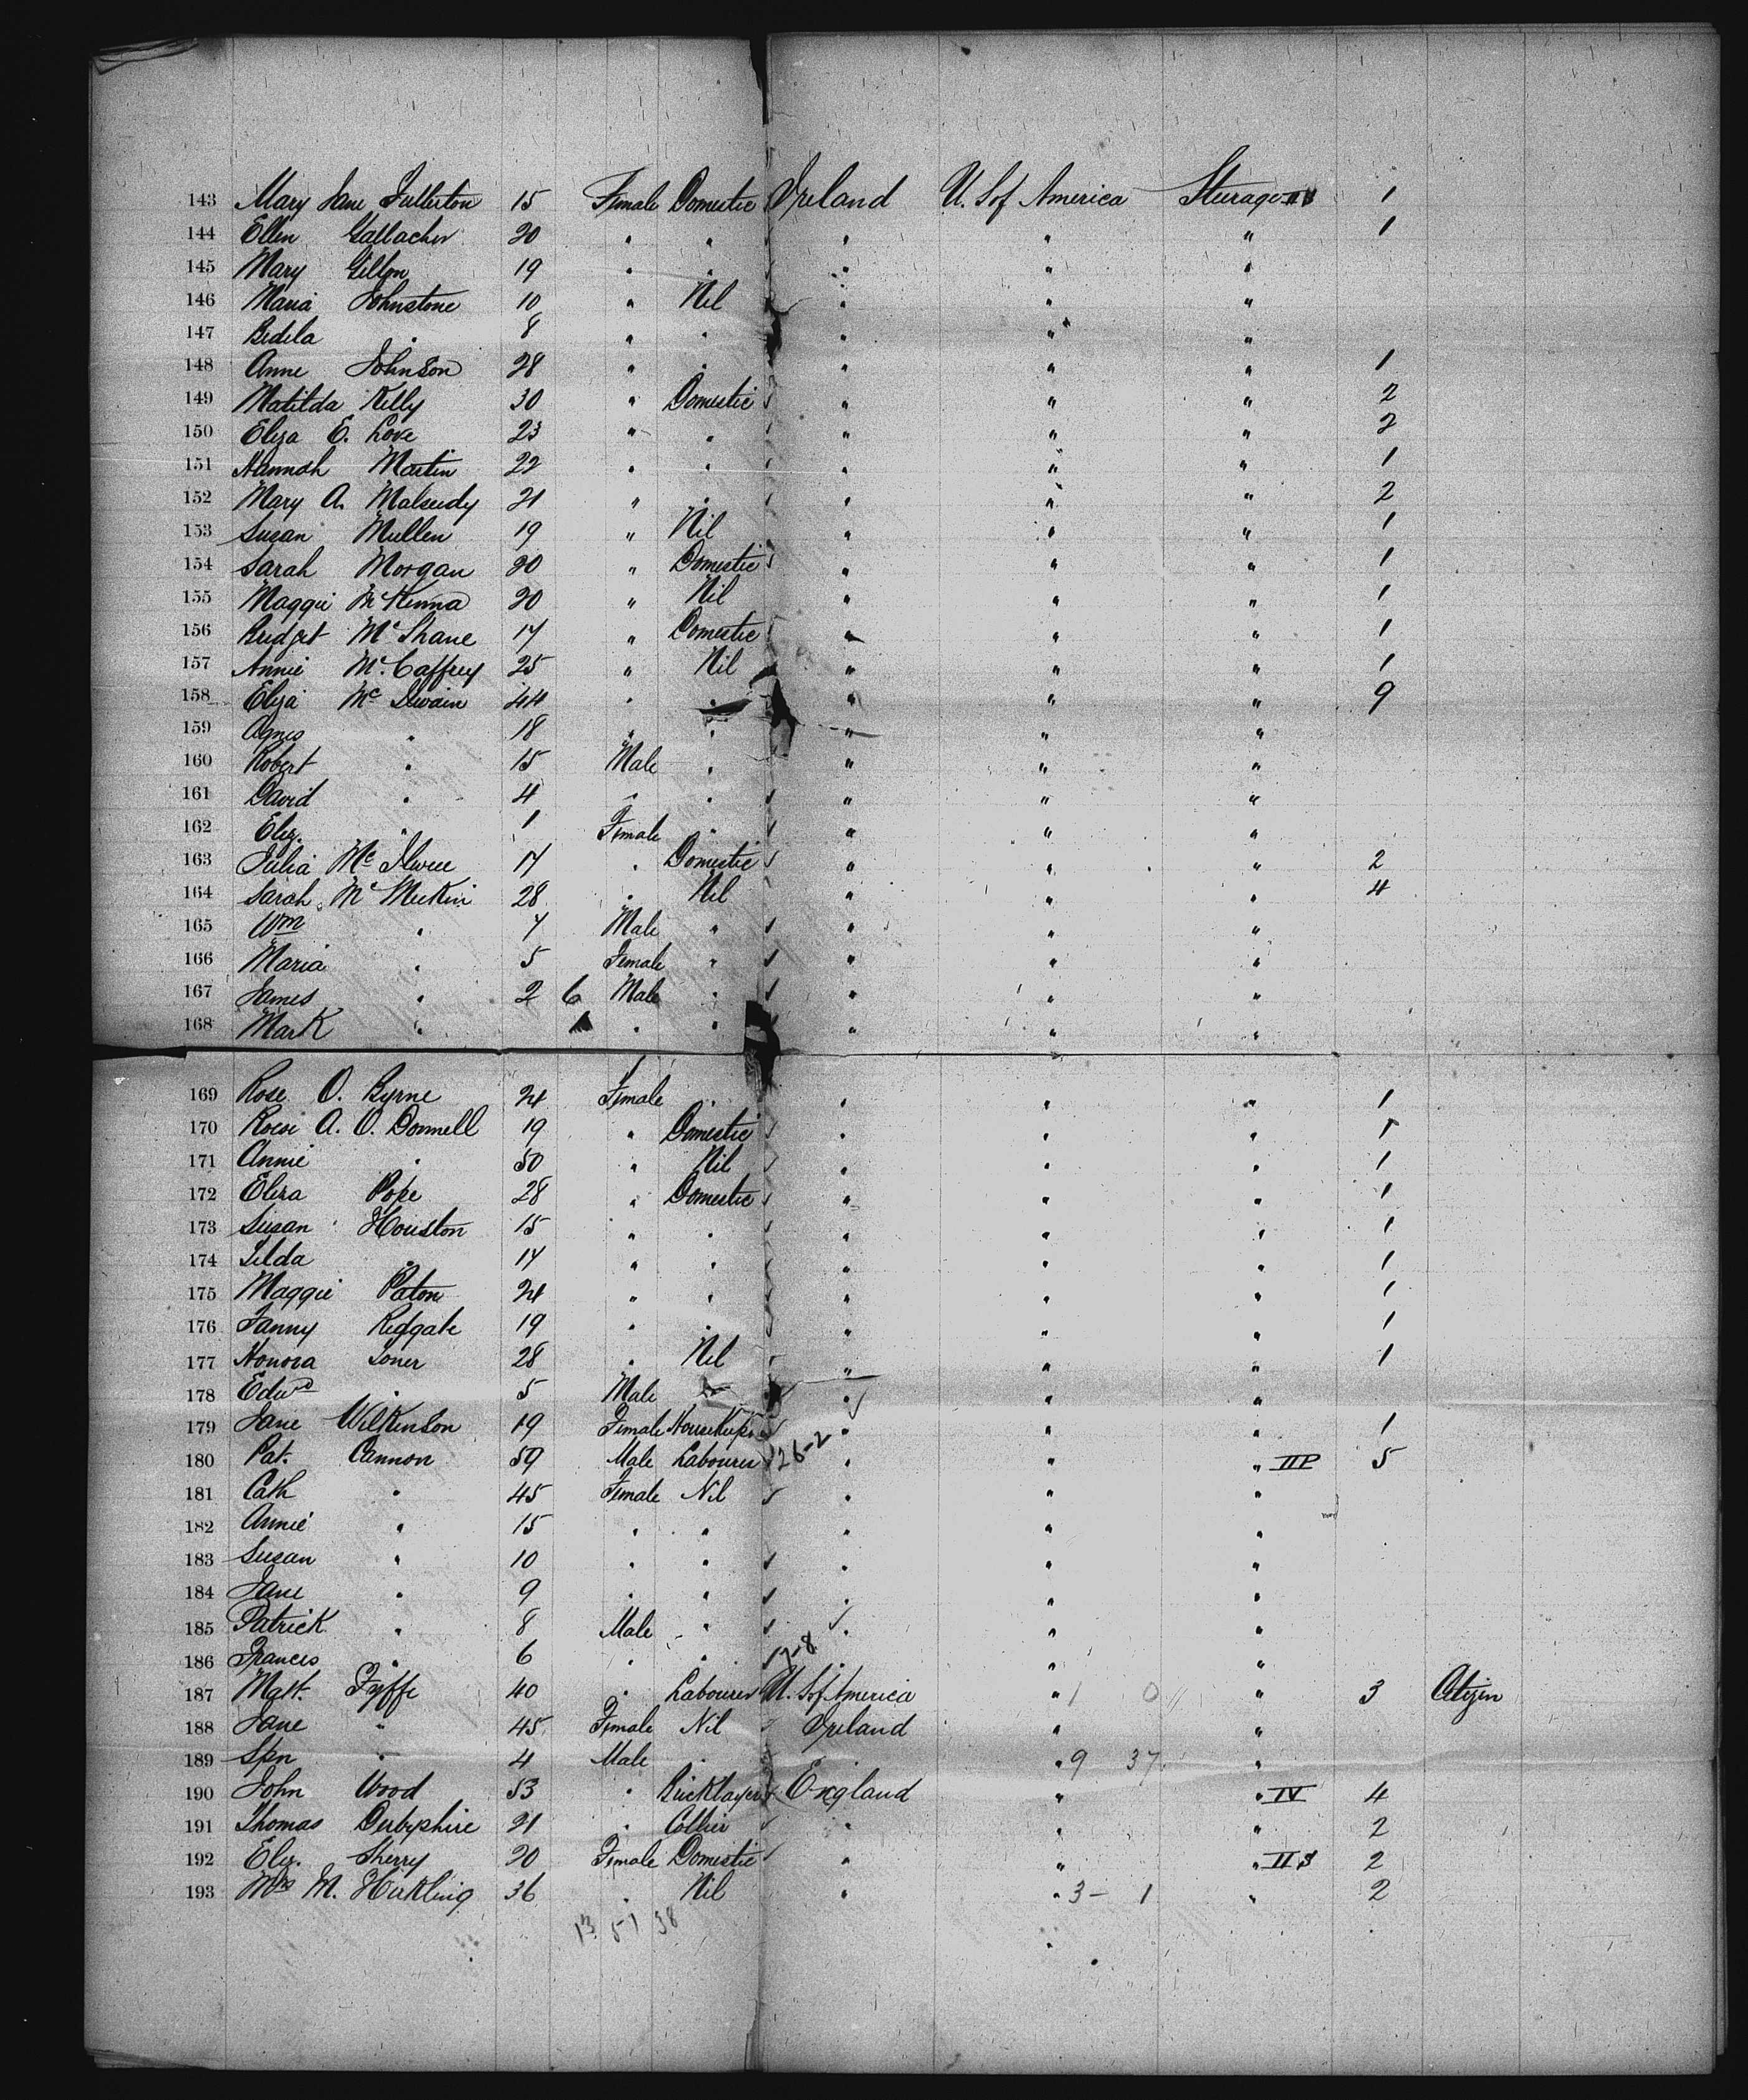 143 Mary Jane Fullerton 15 Female Domestic Ireland U. S of America Steerage 1
144 Ellen Gallacher 20 " " " " " 1
145 Mary Gillon 19 " " " " "
146 Maria Johnstone 10 " Nil " " "
147 Bedila " 8 " " " " "
148 Anne Johnson 28 " " " " " 1
149 Matilda Kelly 30 " Domestic " " " 2
150 Eliza E. Love 23 " " " " " 2
151 Hannah Martin 22 " " " " " 1
152 Mary A. 21 " " " " " 2
153 Susan Mullen 19 " Nil " " " 1
154 Sarah Morgan 20 " Domestic " " " 1
155 Maggie McKenna 20 " Nil " " " 1
156 Bridget McShane 17 " Domestic " " " 1
157 Annie McCaffrey 25 " Nil " " " 1
158 Eliza Mc Ilwain 44 " " " " " 9
159 Agnes " 18 " " " " "
160 Robert " 15 Male " " " "
161 David " 4 " " " " "
162 Eliz. " 1 Female " " " "
163 Julia Mc 17 " Domestic " " " 2
164 Sarah McMeekin 28 " Nil " " " 4
165 Wm " 7 Male " " " "
166 Maria " 5 Female " " " "
167 James " 2 6 Male " " " "
168 Mark " " " " " "
169 Rose O. Byrne 24 Female " " " " 1
170 Rose A. O. Donnell 19 " Domestic " " " 1
171 Annie " 50 " Nil " " " 1
172 Eliza Pope 28 " Domestic " " " 1
173 Susan Houston 15 " " " " " 1
174 Tilda " 14 " " " " " 1
175 Maggie Paton 24 " " " " " 1
176 Fanny Redgate 19 " " " " " 1
177 Honora Toner 28 " Nil " " " 1
178 Edwd " 5 Male " " " "
179 Jane Wilkinson 19 Female Housekeeper " " " 1
180 Pat. Cannon 59 Male Labourer 26-2 " " " IIP 5
181 Cath " 45 Female Nil " " "
182 Annie " 15 " " " " "
183 Susan " 10 " " " " "
184 Jane " 9 " " " " "
185 Patrick " 8 Male " " " "
186 Frances " 6 " " 7-8 " " "
187 Matt. Fyffe 40 " Labourer U. S of America " 1 0 " 3 Citizen
188 Jane " 45 Female Nil Ireland " "
189 " 4 Male " " 9 37 "
190 John Wood 53 " Bricklayer England " " IV 4
191 Thomas Derbyshire 21 " Collier " " " 2
192 Eliz. Sherry 20 Female Domestic " " " II S 2
193 Mrs M. Hickling 36 " Nil " " 3 - 1 " 2
13 51 38